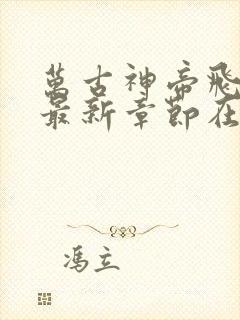 萬古神帝飛
最新章節在
馮立